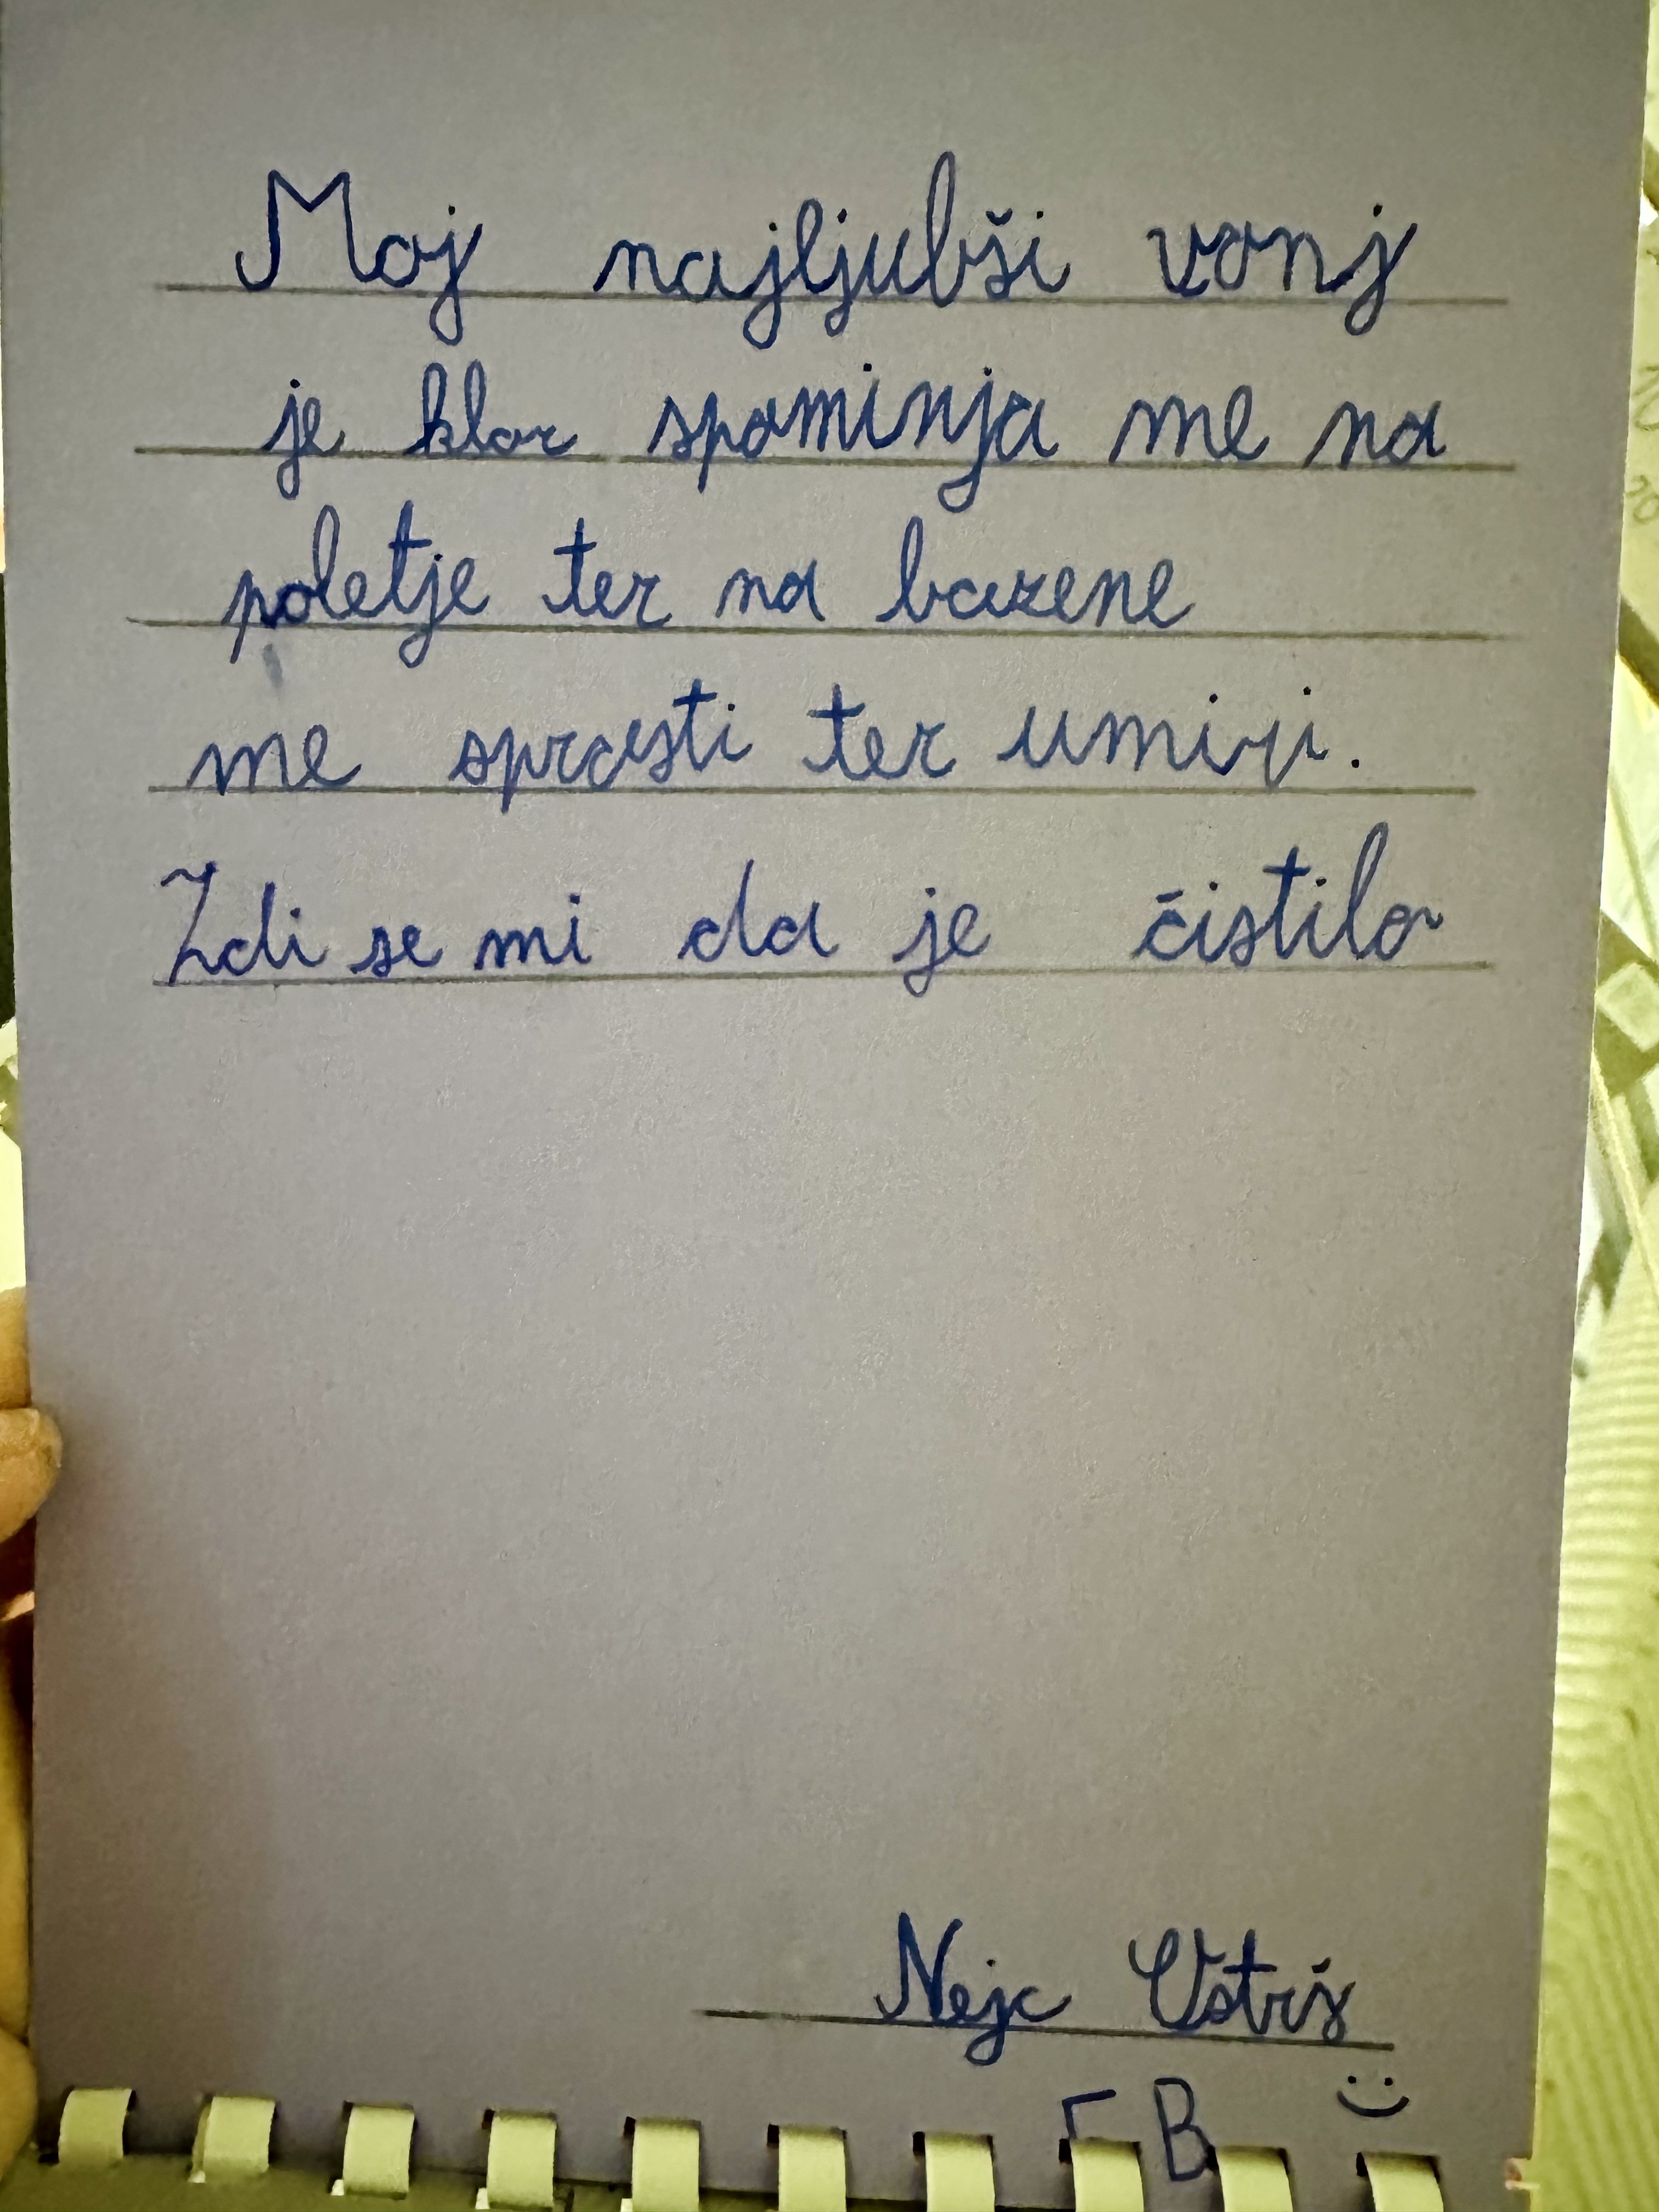 Moj najljubši vonj
je klor spominja me na
poletje ter na bazene
me sprasti ter umiri.
Zdi se mi da je čistilo
Nejc
B